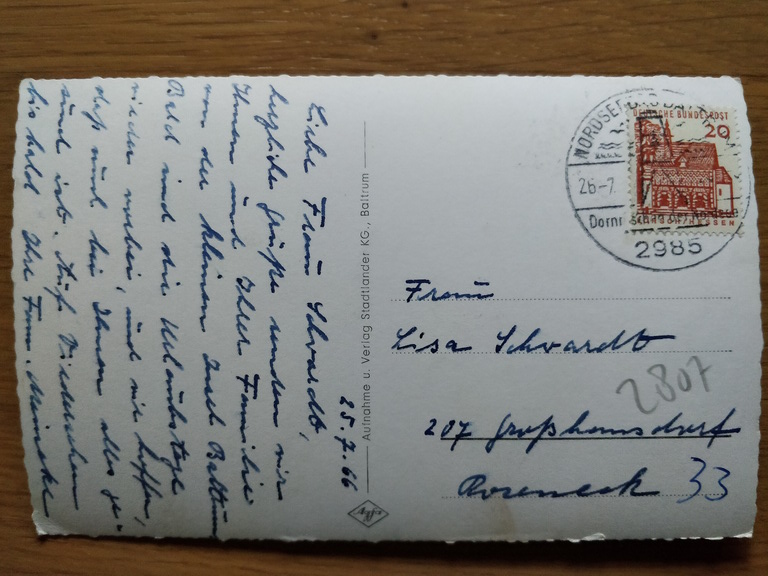 25.7.66
Liebe Frau Schwardt,
herzliche Grüße senden wir
Ihnen und Ihrer Familie
von der kleinen Insel Baltrum
Bald sind die Urlaubstage
wieder vorbei, und wir hoffen,
daß auch bei Ihnen alles ge-
sund ist. Auf Wiedersehen
bis bald Ihre Fam. Meineke
Aufnahme u. Verlag Stadtlander KG., Baltrum
NORDSEEBAD BALTRUM
26-7
2985
DEUTSCHE BUNDESPOST
20
Frau
Lisa Schwardt
2807
207 Großhansdorf
Roseneck 33